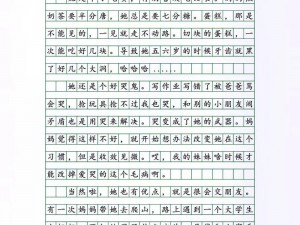 奶茶要半分唐，她总是要七分糖。蛋糕，那是
不能见的，一见，就是走不动路。切块的蛋糕，一
次能吃好几块。导致她五六岁的时候牙齿就黑
了好几个大洞，哈哈哈……
她还是个好哭鬼。写作业写错了被爸爸骂
会哭，抢玩具抢不过我也哭，和别的小朋友闹
矛盾也是用哭来解决。哭变成了她的武器。妈
妈觉得这样不好，就开始想办法改变她在这个
习惯，但是收效见微。哎，我的妹妹啥时候才
能改掉爱哭的这个毛病啊。
当然啦，她也有优点，就是很会交朋友。
有一次妈妈带她去爬山，路上遇到一个大学生